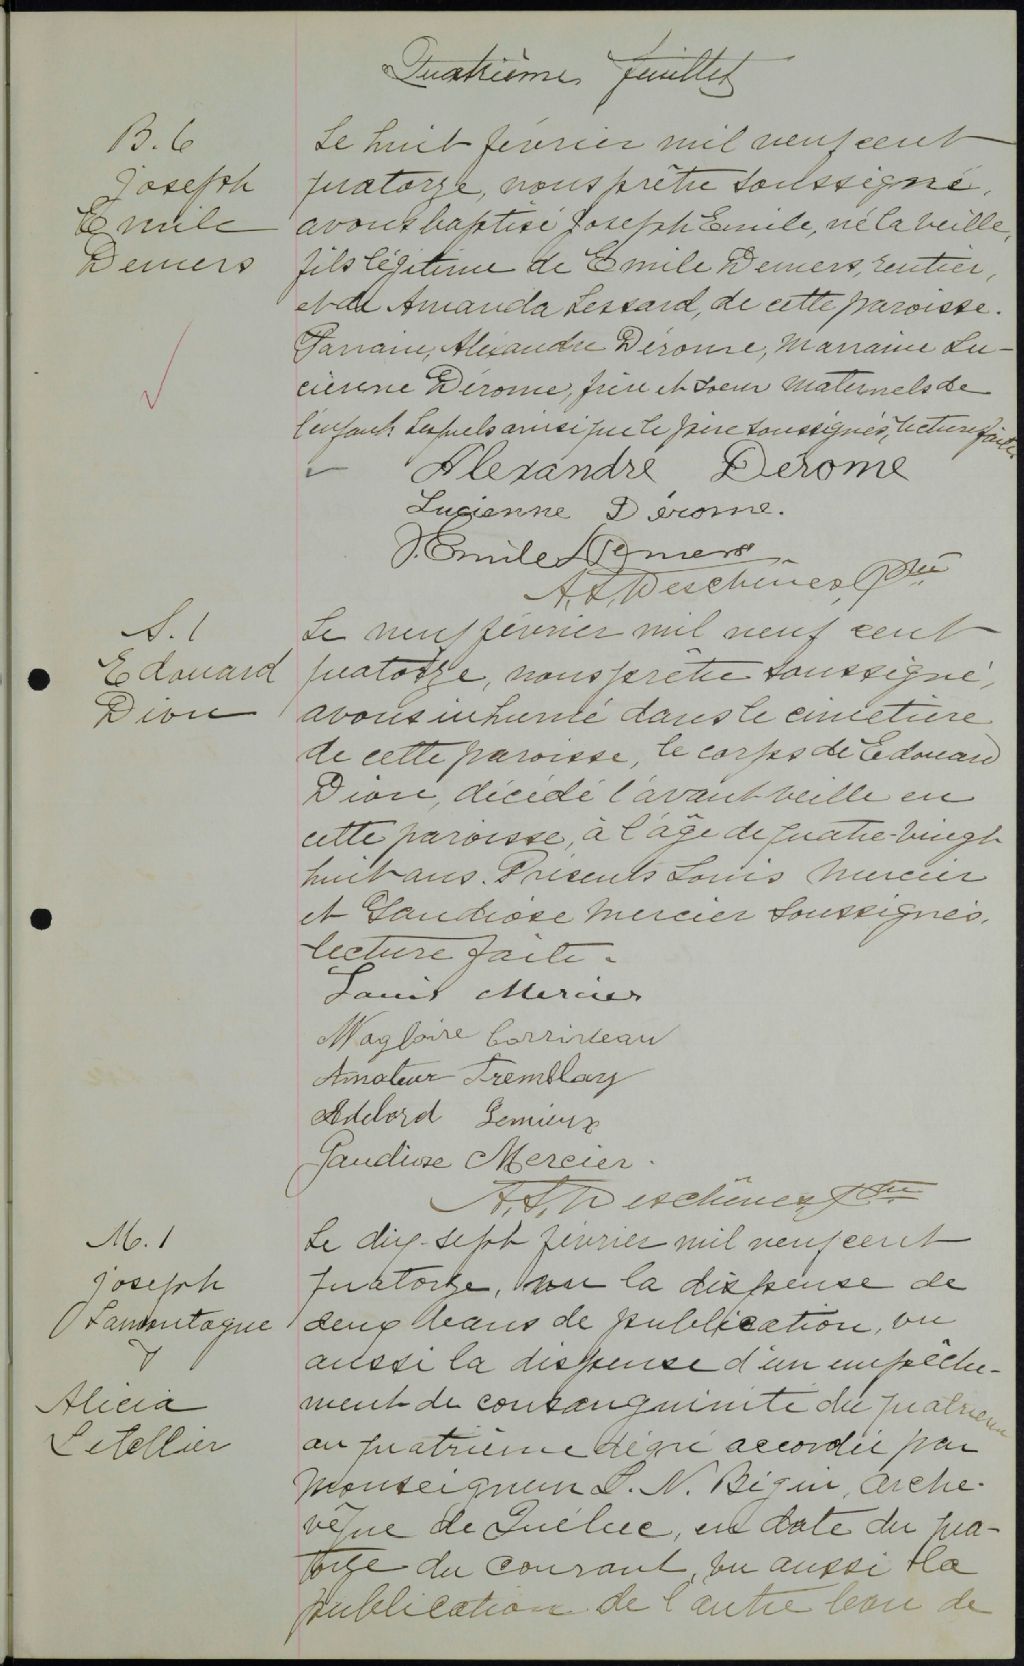 Quatrième feuillet
B. 6
Joseph
Emile
Demers
Le huit février mil neuf cent
quatorze, nous prêtre soussigné,
avons baptisé Joseph Emile, né la veille,
fils légitime de Emile Demers, rentier,
et de Amanda Lessard, de cette paroisse.
Parrain, Alexandre Dérome, Marraine Lu-
cienne Dérome, frère et soeur maternels de
l'enfant lesquels ainsi que le père soussignés, lecture faite.
Alexandre Dérome
Lucienne Dérome.
J. Emile Demers
A. S. Deschênes, Ptre
S. 1
Edouard
Dion
Le neuf février mil neuf cent
quatorze, nous prêtre soussigné,
avons inhumé dans le cimetière
de cette paroisse, le corps de Edouard
Dion, décédé l'avant veille en
cette paroisse, à l'âge de quatre-vingt
huit ans. Présents Louis Mercier
et Gaudiose Mercier soussignés,
lecture faite.
Louis Mercier
Magloire Corriveau
Amateur Tremblay
Adelard Lemieux
Gaudiose Mercier.
A. S. Deschênes, Ptre
M. 1
Joseph
Lamontagne
&
Alicia
Letellier
Le dix-sept février mil neuf cent
quatorze, vu la dispense de
deux bans de publication, vu
aussi la dispense d'un empêche-
ment de consanguinité du quatrième
au quatrième dégré accordée par
Monseigneur L. N. Bégin, Arche-
vêque de Québec, en date du qua-
torze du courant, vu aussi la
publication de l'autre ban de